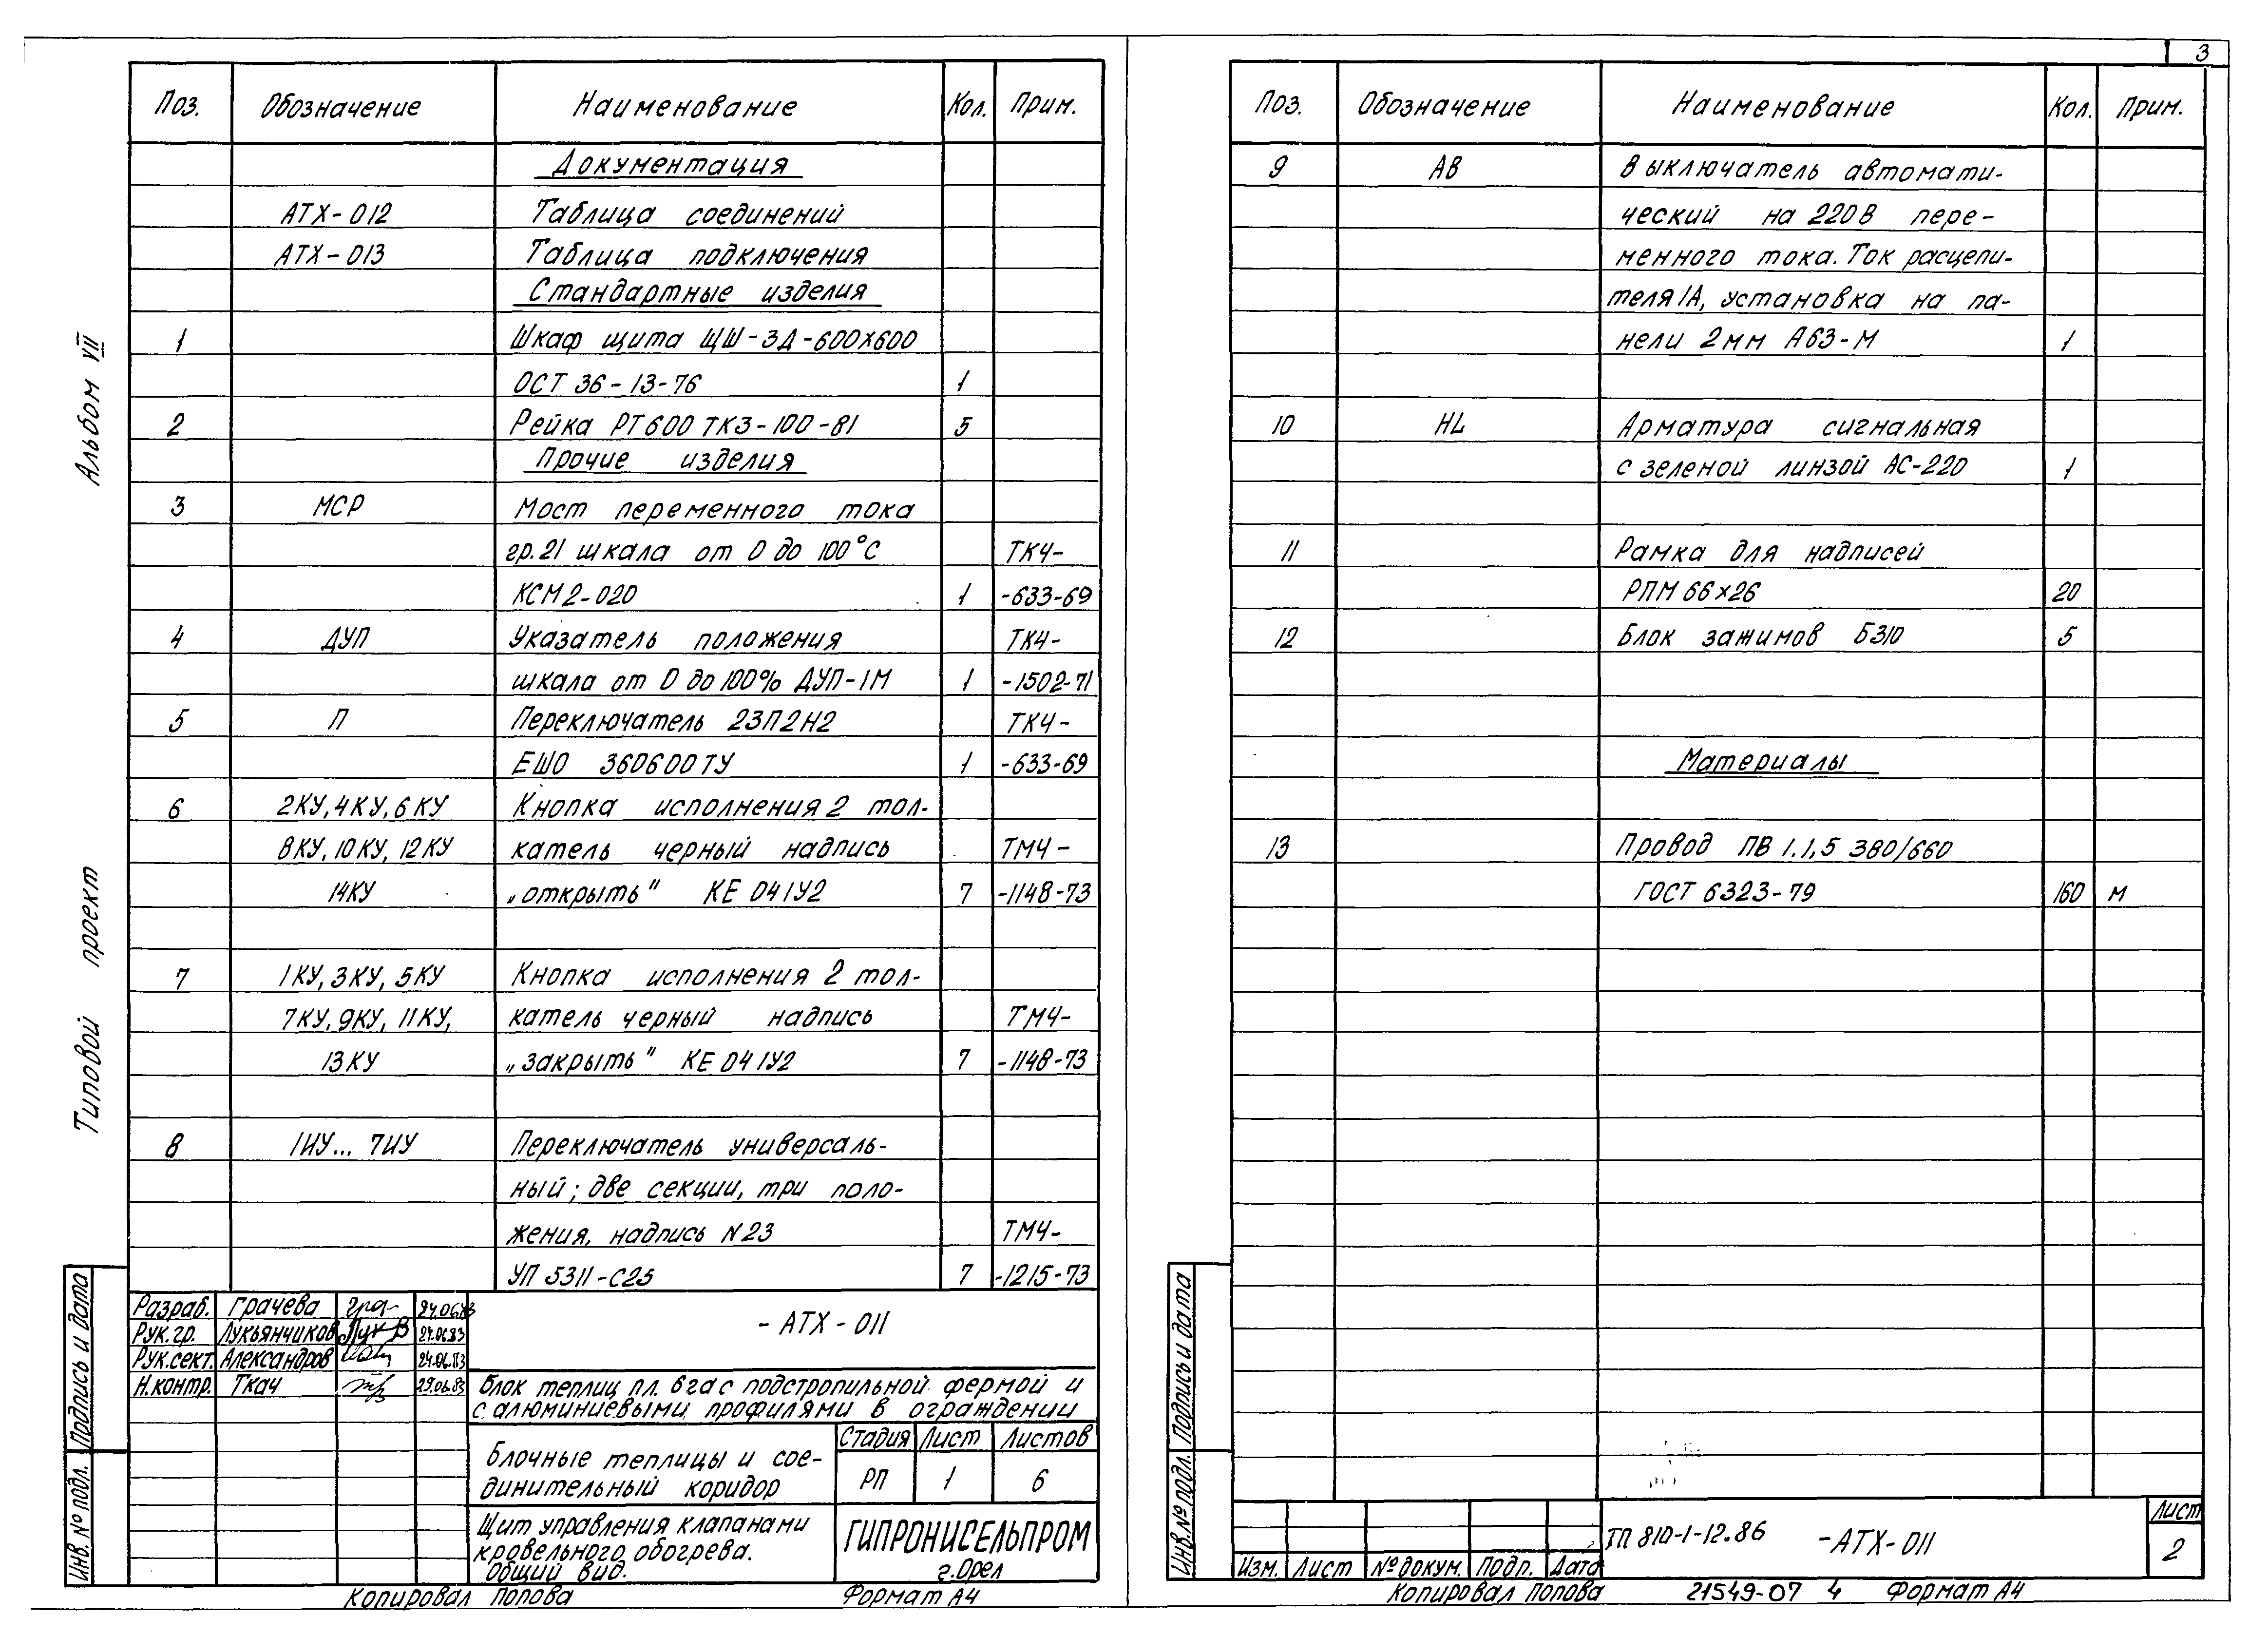 3
Альбом VII
Типовой проект
Поз. Обозначение Наименование Кол. Прим.
Документация
АТХ-012 Таблица соединений
АТХ-013 Таблица подключения
Стандартные изделия
1 Шкаф щита ЩШ-ЗД-600х600
ОСТ 36-13-76 1
2 Рейка РТ600 ТК3-100-81 5
Прочие изделия
3 МСР Мост переменного тока
гр.21 шкала от 0 до 100°С ТК4-
КСМ2-020 1 -633-69
4 ДУП Указатель положения ТК4-
шкала от 0 до 100% ДУП-1М 1 -1502-71
5 П Переключатель 23П2Н2 ТК4-
ЕШО 360600ТУ 1 -633-69
6 2КУ, 4КУ, 6КУ Кнопка исполнения 2 тол-
8КУ, 10КУ, 12КУ катель черный надпись ТМ4-
14КУ „открыть" КЕ 041У2 7 -1148-73
7 1КУ, 3КУ, 5КУ Кнопка исполнения 2 тол-
7КУ, 9КУ, 11КУ, катель черный надпись ТМ4-
13КУ „закрыть" КЕ 041У2 7 -1148-73
8 1ИУ... 7ИУ Переключатель универсаль-
ный; две секции, три поло-
жения, надпись N23 ТМ4-
УП 5311-С25 7 -1215-73
Разраб. Грачева 24.06.83
Рук.гр. Лукьянчиков 24.06.83
Рук.сект. Александров 24.06.83
Н.контр. Ткач 29.06.83
-АТХ-011
Блок теплиц пл. 6га с подстропильной фермой и
с алюминиевыми профилями в ограждении
Блочные теплицы и сое-
динительный коридор
Стадия Лист Листов
РП 1 6
Щит управления клапанами
кровельного обогрева.
Общий вид.
ГИПРОНИСЕЛЬПРОМ
г.Орел
Подпись и дата
Инв. № подл.
Копировал Попова Формат А4
Поз. Обозначение Наименование Кол. Прим.
9 АВ Выключатель автомати-
ческий на 220В пере-
менного тока. Ток расцепи-
теля 1А, установка на па-
нели 2мм А63-М 1
10 HL Арматура сигнальная
с зеленой линзой АС-220 1
11 Рамка для надписей
РПМ 66х26 20
12 Блок зажимов БЗ10 5
Материалы
13 Провод ПВ 1.1,5 380/660
ГОСТ 6323-79 160 м
Подпись и дата
Инв. № подл.
Изм. Лист № докум. Подп. Дата
ТП 810-1-12.86 -АТХ-011
Лист
2
Копировал Попова 21549-07 4 Формат А4